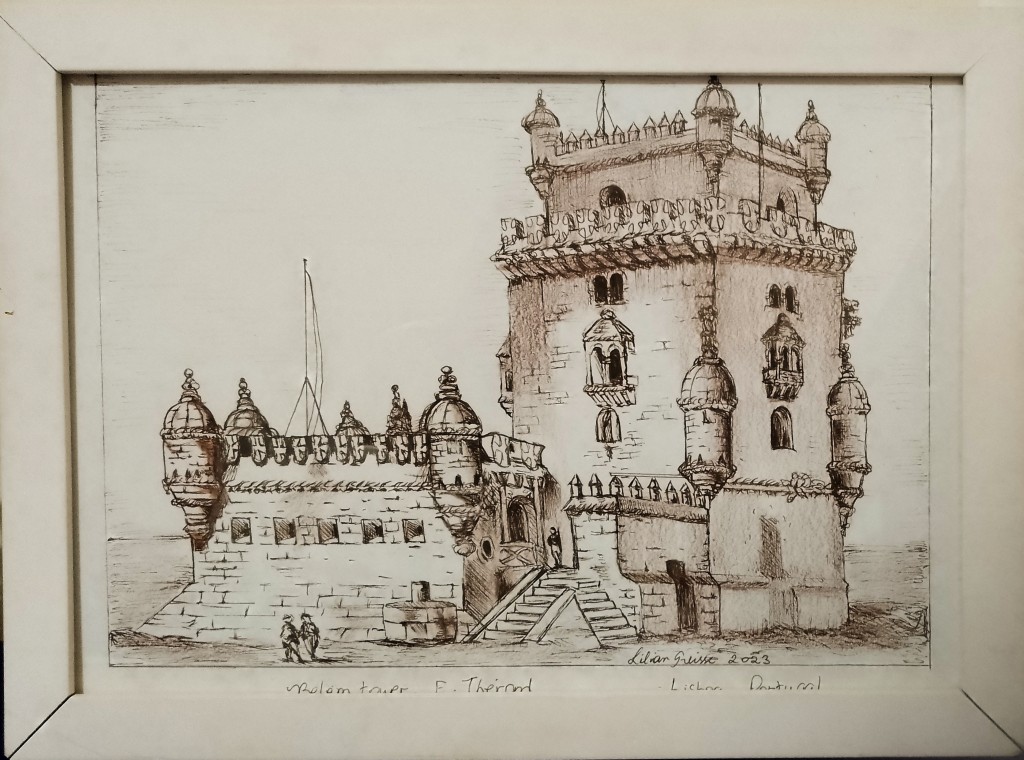 Lilian Greisse 2023
Belem tower E. Thérond Lisboa Portugal